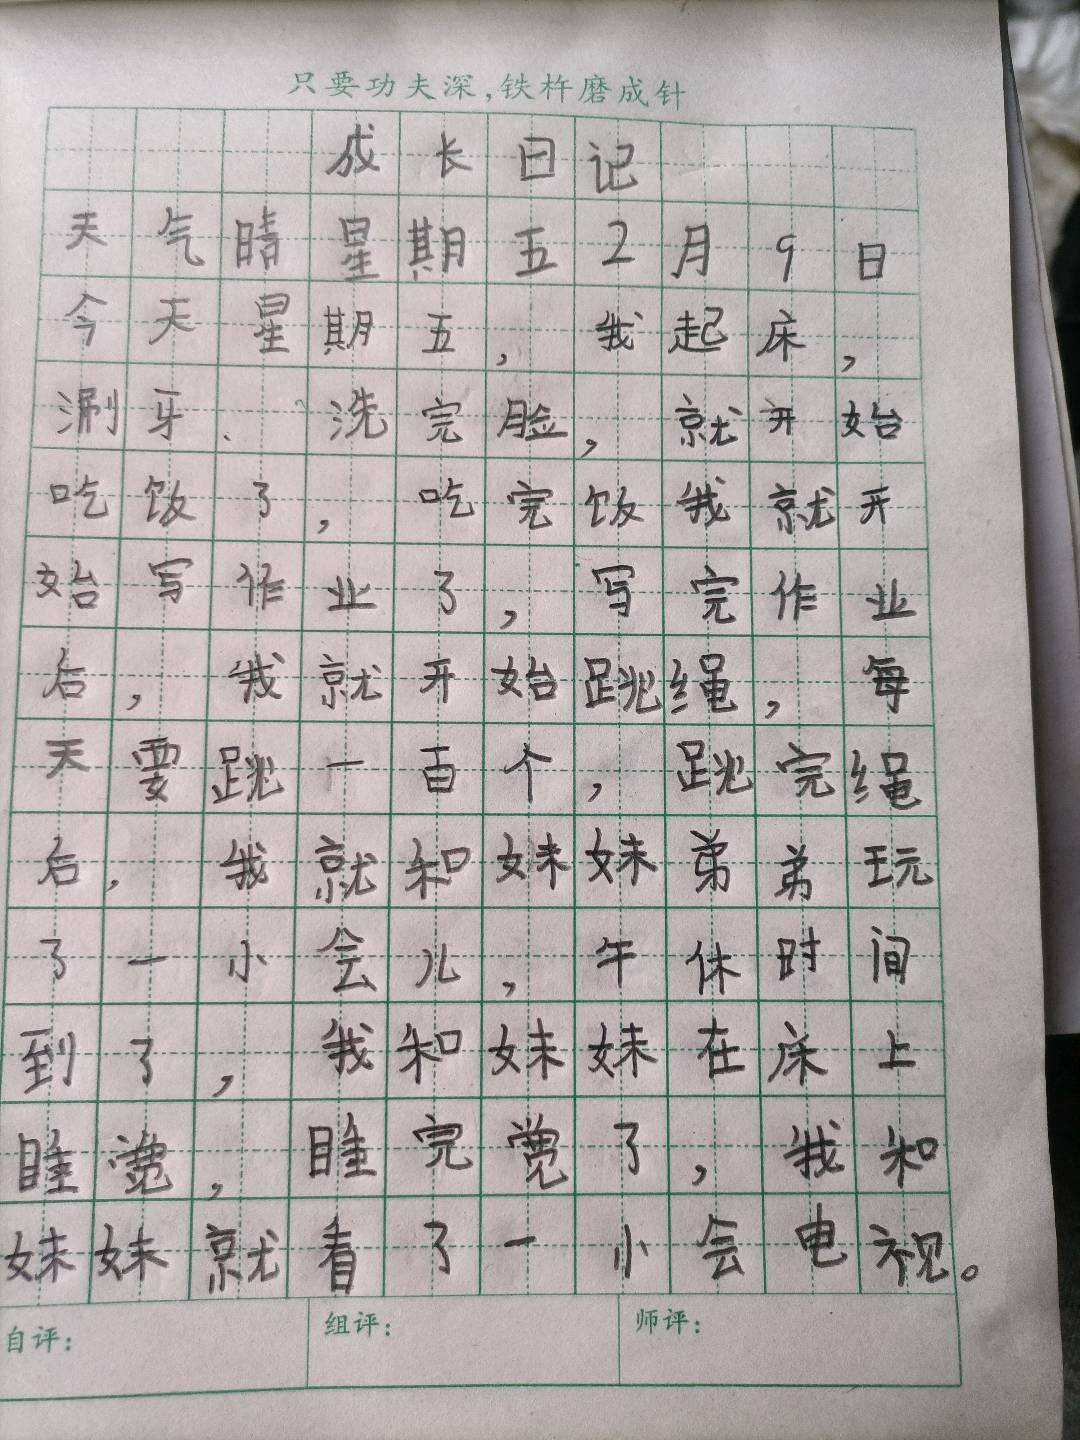 只要功夫深,铁杵磨成针
成长日记
天气晴星期五2月9日
今天星期五，我起床，
涮牙、洗完脸，就开始
吃饭了，吃完饭我就开
始写作业了，写完作业
后，我就开始跳绳，每
天要跳一百个，跳完绳
后，我就和妹妹弟弟玩
了一小会儿，午休时间
到了，我和妹妹在床上
睡觉，睡完觉了，我和
妹妹就看了一小会电视。
自评： 组评： 师评：